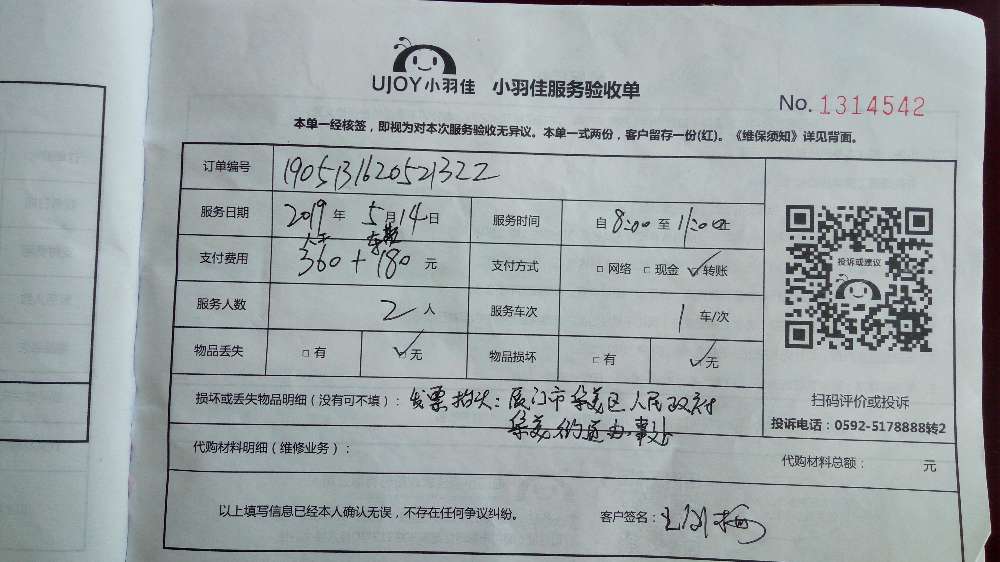 UJOY小羽佳 小羽佳服务验收单
No. 1314542
本单一经核签，即视为对本次服务验收无异议。本单一式两份，客户留存一份(红)。《维保须知》详见背面。
订单编号 1905131620521322
服务日期 2019年 5月14日 服务时间 自 8:00 至 11:00 止
支付费用 360+180 元 支付方式 □网络 □现金 ☑转账
服务人数 2人 服务车次 1 车/次
物品丢失 □有 ☑无 物品损坏 □有 ☑无
投诉或建议
损坏或丢失物品明细（没有可不填）：发票抬头：厦门市集美区人民政府
集美街道办事处
扫码评价或投诉
投诉电话：0592-5178888转2
代购材料明细（维修业务）：
代购材料总额： 元
以上填写信息已经本人确认无误，不存在任何争议纠纷。 客户签名：